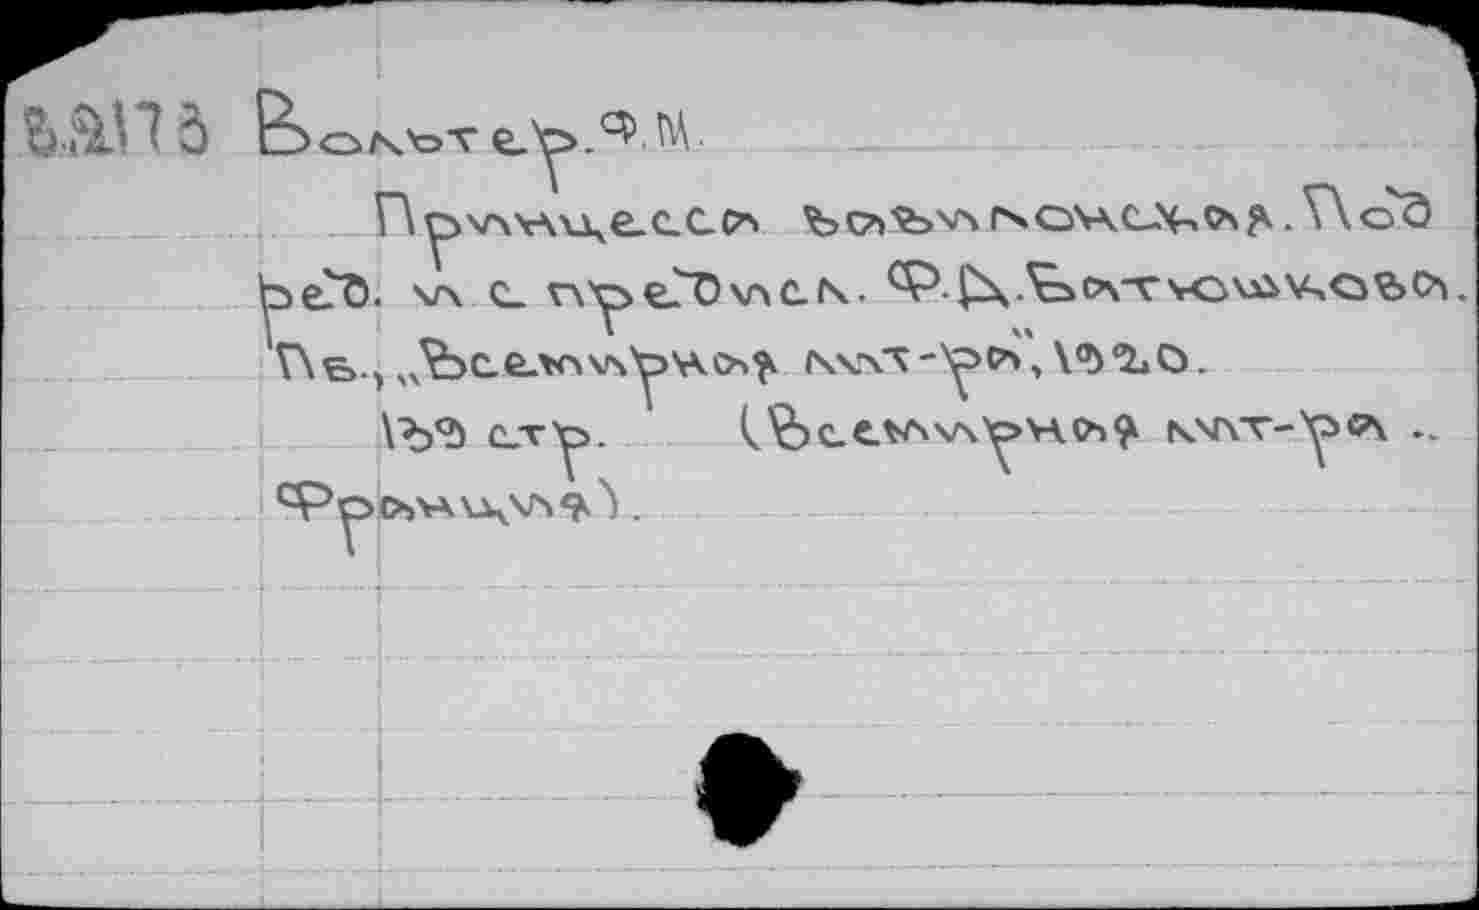 Вольтер.Ф.М.
Принцесса вавилонская. Под
ред. и с предисл. Ф.Д.Батюшкова.
Пб., „Всемирная лит-ра", 1920.
139 стр. (Всемирная лит-ра ..
Франция).